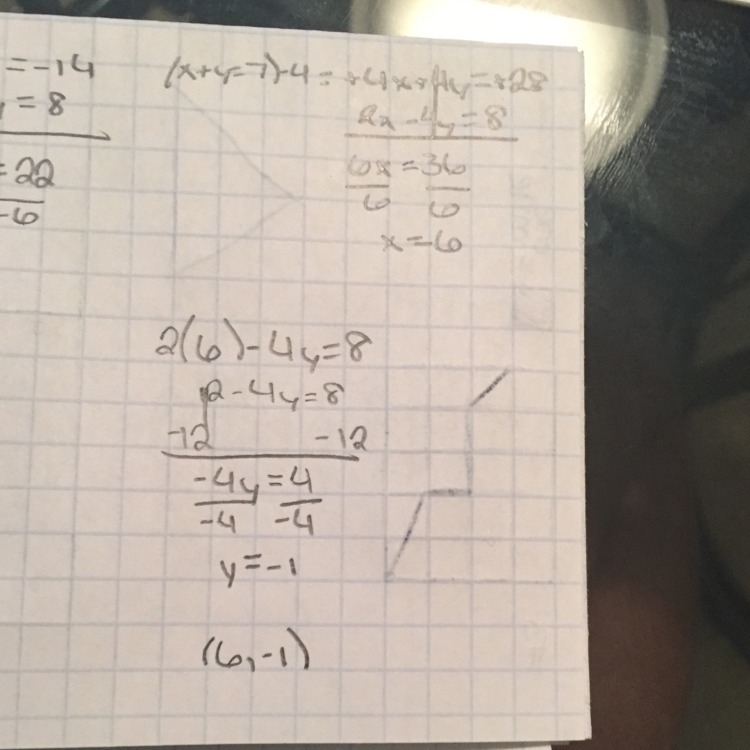 =-14
(x+y=7)-4 = +4x+4y=+28
y=8
2x-4y=8
=22
-6
6x=36
6 6
x=6
2(6)-4y=8
12-4y=8
-12 -12
-4y=4
-4 -4
y=-1
(6,-1)